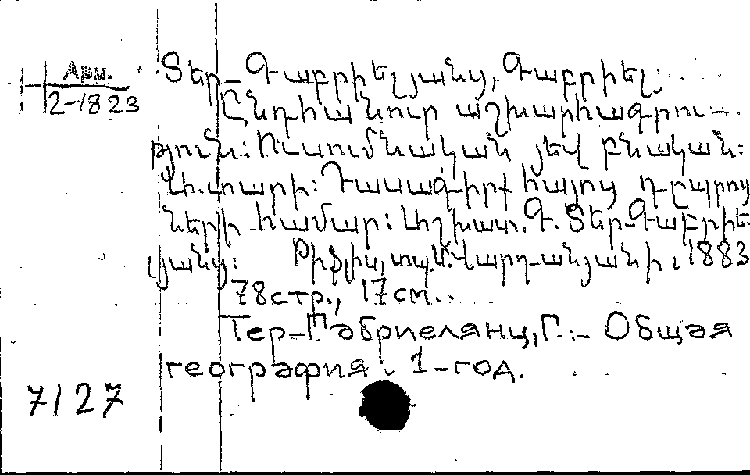 Арм.
2-1823
Տեր-Գաբրիելյանց, Գաբրիել.
Ընդհանուր աշխարհագրու-
թյուն: Ուսումնական յեվ բնական:
I տարի: Դասագիրք հայոց դպրոց
ների համար: Աշխատ. Գ. Տեր-Գաբրիե
լյանց: Թիֆլիս, տպ. Մ. Վարդանյանի, 1883
78стр., 17см.
Тер-Габриелянц, Г. - Общая
география. 1-год.
7127